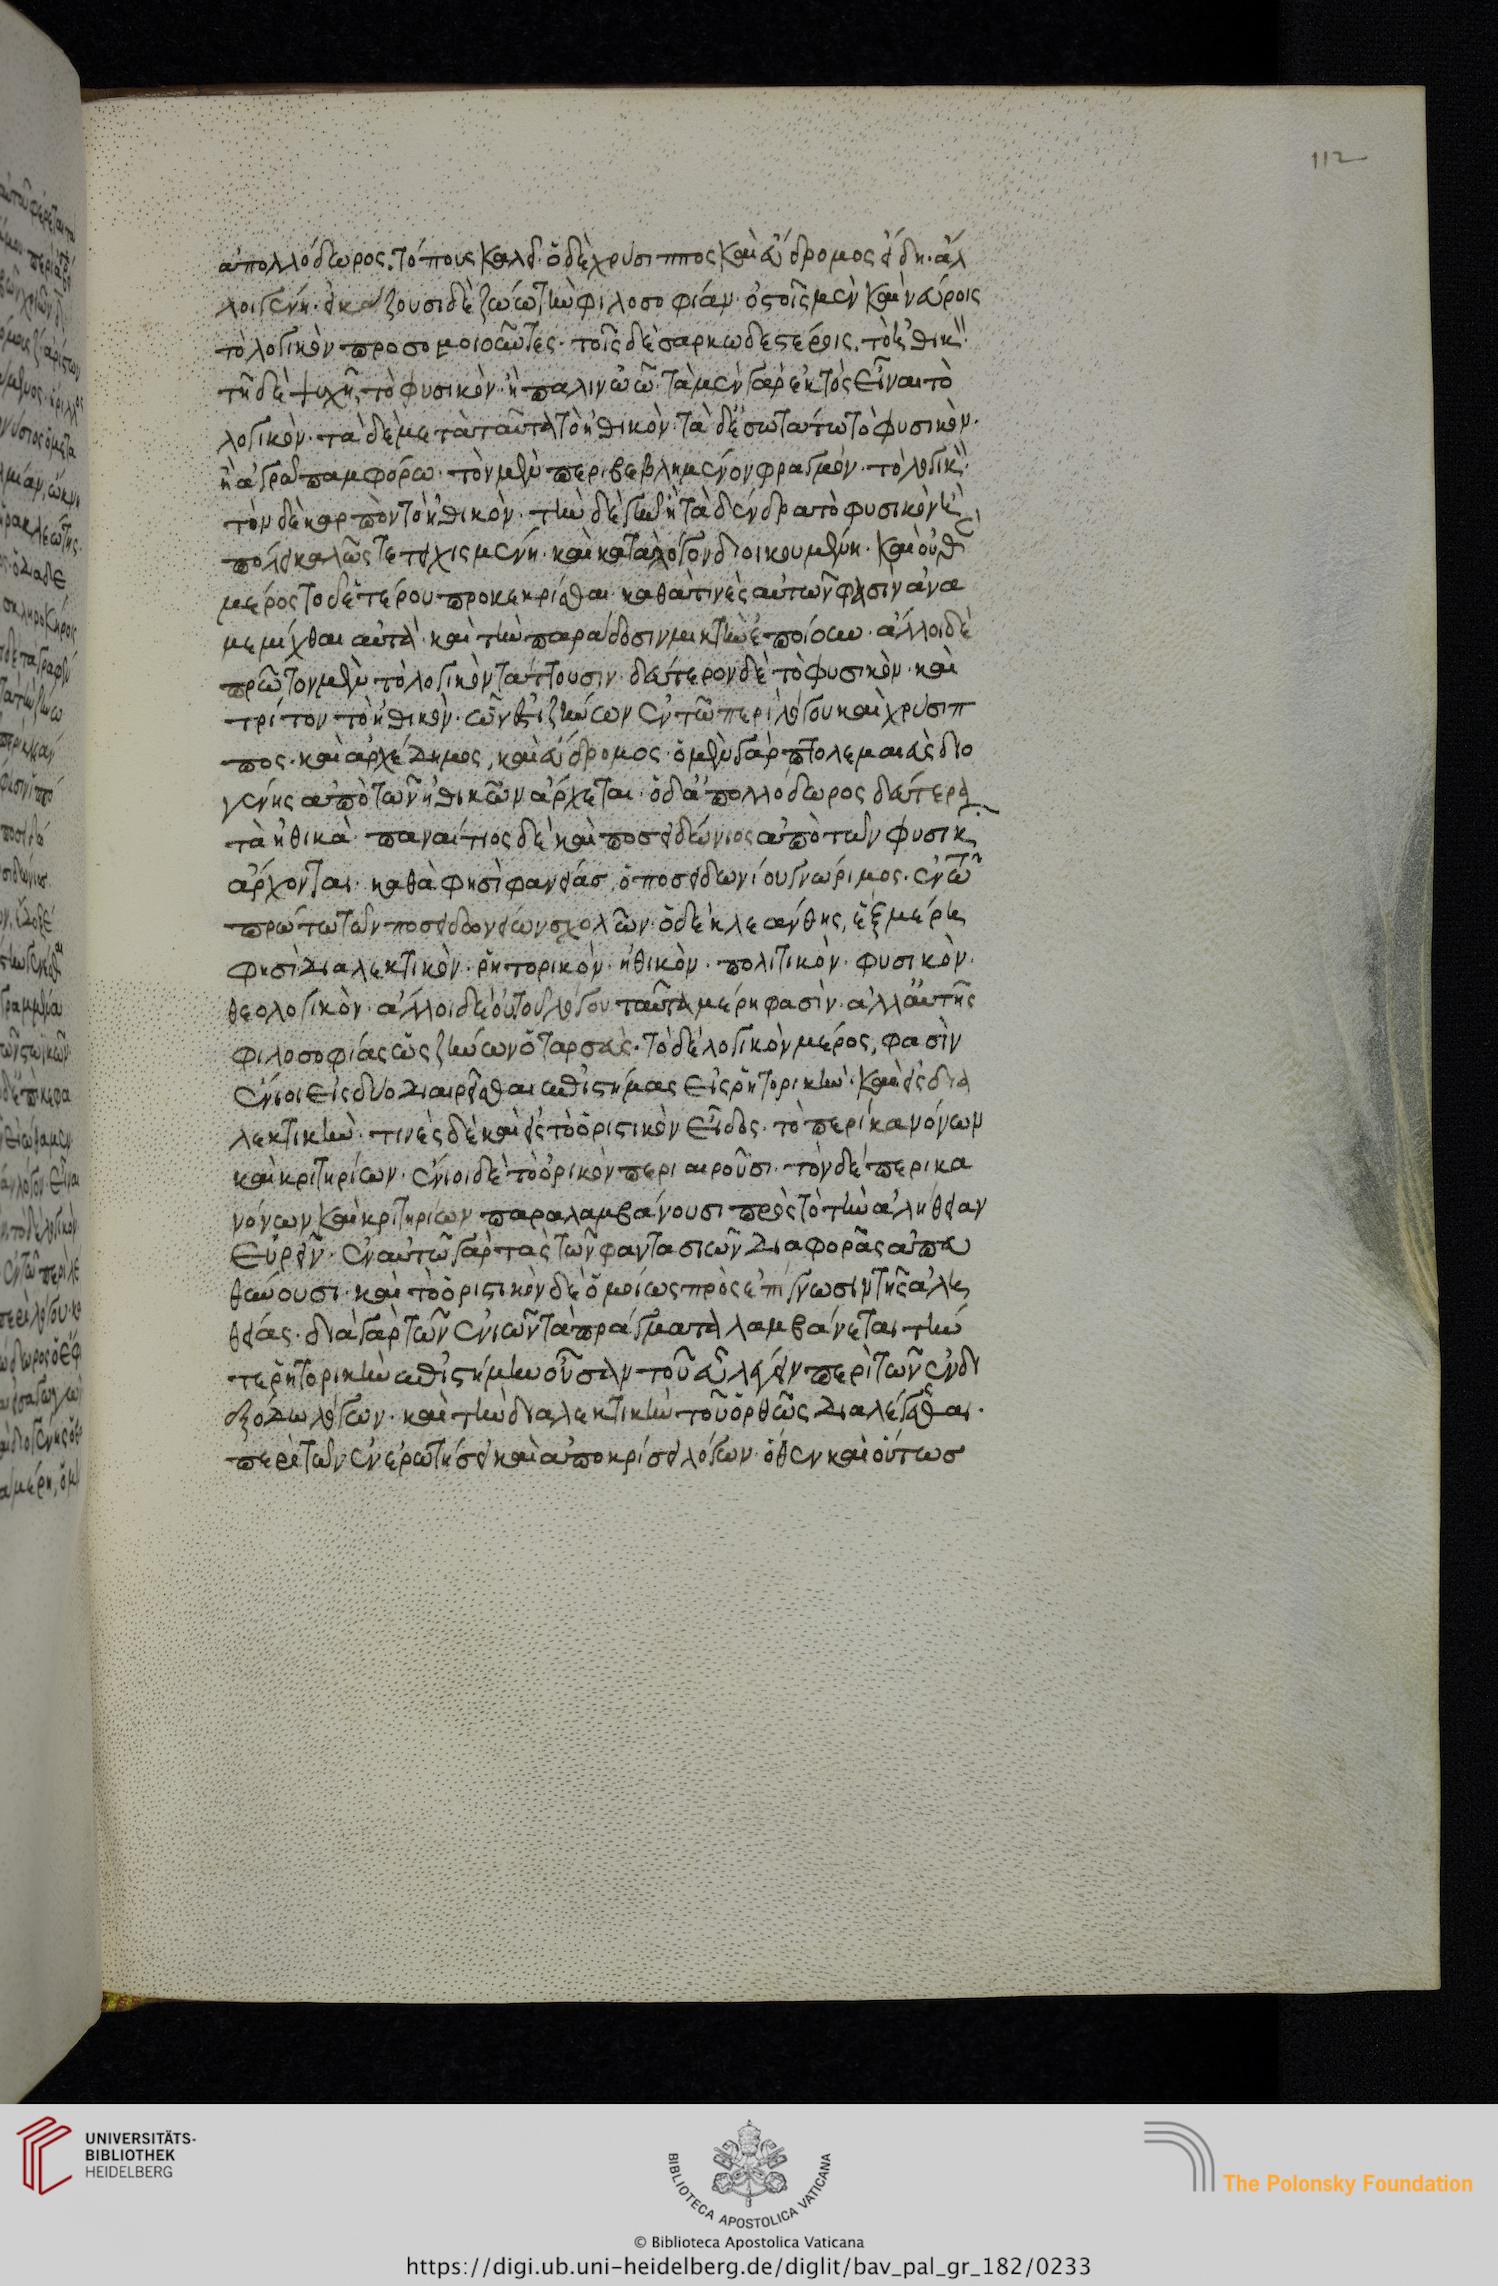 112
ἀπολλόδωρος, τόπους καλεῖ· ὁ δὲ χρύσιππος καὶ εὔδρομος εἴδη· ἄλ
λοι γένη· εἰκάζουσι δὲ ζώω τὴν φιλοσοφίαν· ὀστοῖς μὲν καὶ νεύροις
τὸ λογικὸν προσομοιοῦντες· τοῖς δὲ σαρκωδεστέροις, τὸ ἠθικὸν·
τῆ δὲ ψυχῆ, τὸ φυσικὸν· ἢ πάλιν ὠῶ· τὰ μὲν γὰρ ἐκτὸς εἶναι τὸ
λογικὸν· τὰ δὲ μετὰ ταῦτα τὸ ἠθικὸν· τὰ δ' ἐσωτάτω τὸ φυσικὸν·
ἢ ἀγρῶ παμφόρω· τὸν μὲν περιβεβλημένον φραγμὸν· τὸ λογικὸν·
τὸν δὲ καρπὸν τὸ ἠθικὸν· τὴν δὲ γῆν ἢ τὰ δένδρα τὸ φυσικὸν· ἢ
πόλει καλῶς τετειχισμένη· καὶ κατὰ λόγον διοικουμένη· καὶ οὐθὲν
μέρος τοῦ ἑτέρου προκεκρίσθαι· καθά τινες αὐτῶν φασὶν ἀνα
μεμίχθαι αὐτά· καὶ τὴν παράδοσιν μικτὴν ἐποίουν· ἄλλοι δὲ
πρῶτον μὲν τὸ λογικὸν τάττουσιν· δεύτερον δὲ τὸ φυσικὸν· καὶ
τρίτον τὸ ἠθικὸν· ὧν ἐστι ζήνων ἐν τῶ περὶ λόγου καὶ χρύσιπ
πος· καὶ ἀρχέδημος, καὶ εὔδρομος· ὁ μὲν γὰρ πτολεμαιεὺς διο
γένης ἀπὸ τῶν ἠθικῶν ἄρχεται· ὁ δ' ἀπολλόδωρος δεύτερα
τὰ ἠθικὰ· παναίτιος δὲ καὶ ποσειδώνιος ἀπὸ τῶν φυσικῶν
ἄρχονται· καθὰ φησὶ φανείας, ὁ ποσειδωνίου γνώριμος· ἐν τῶ
πρώτω τῶν ποσειδωνείων σχολῶν· ὁ δὲ κλεάνθης, ἓξ μέρη
φησὶ διαλεκτικὸν· ῥητορικὸν· ἠθικὸν· πολιτικὸν· φυσικὸν·
θεολογικὸν· ἄλλοι δὲ οὐ τοῦ λόγου ταῦτα μέρη φασὶν· ἀλλ' αὐτῆς
φιλοσοφίας ὡς ζήνων ὁ ταρσεὺς· τὸ δὲ λογικὸν μέρος, φασὶν
ἔνιοι εἰς δύο διαιρεῖσθαι ἐπιστήμας εἰς ῥητορικὴν· καὶ εἰς δια
λεκτικὴν· τινὲς δὲ καὶ εἰς τὸ ὁριστικὸν εἶδος· τὸ περὶ κανόνων
καὶ κριτηρίων· ἔνιοι δὲ τὸ ὁρικὸν περιαιροῦσι· τὸν δὲ περὶ κα
νόνων καὶ κριτηρίων παραλαμβάνουσι πρὸς τὸ τὴν ἀλήθειαν
εὑρεῖν· ἐν αὐτῶ γὰρ τὰς τῶν φαντασιῶν διαφορὰς ἀπευ
θύνουσι· καὶ τὸ ὁριστικὸν δὲ ὁμοίως πρὸς ἐπίγνωσιν τῆς ἀλη
θείας· διὰ γὰρ τῶν ἐννοιῶν τὰ πράγματα λαμβάνεται· τήν
τε ῥητορικὴν ἐπιστήμην οὖσαν τοῦ εὖ λέγειν περὶ τῶν ἐν δι
εξόδω λόγων· καὶ τὴν διαλεκτικὴν τοῦ ὀρθῶς διαλέγεσθαι·
περὶ τῶν ἐν ἐρωτήσει καὶ ἀποκρίσει λόγων· ὅθεν καὶ οὕτως
UNIVERSITÄTS-
BIBLIOTHEK
HEIDELBERG
BIBLIOTECA APOSTOLICA VATICANA
The Polonsky Foundation
© Biblioteca Apostolica Vaticana
https://digi.ub.uni-heidelberg.de/diglit/bav_pal_gr_182/0233